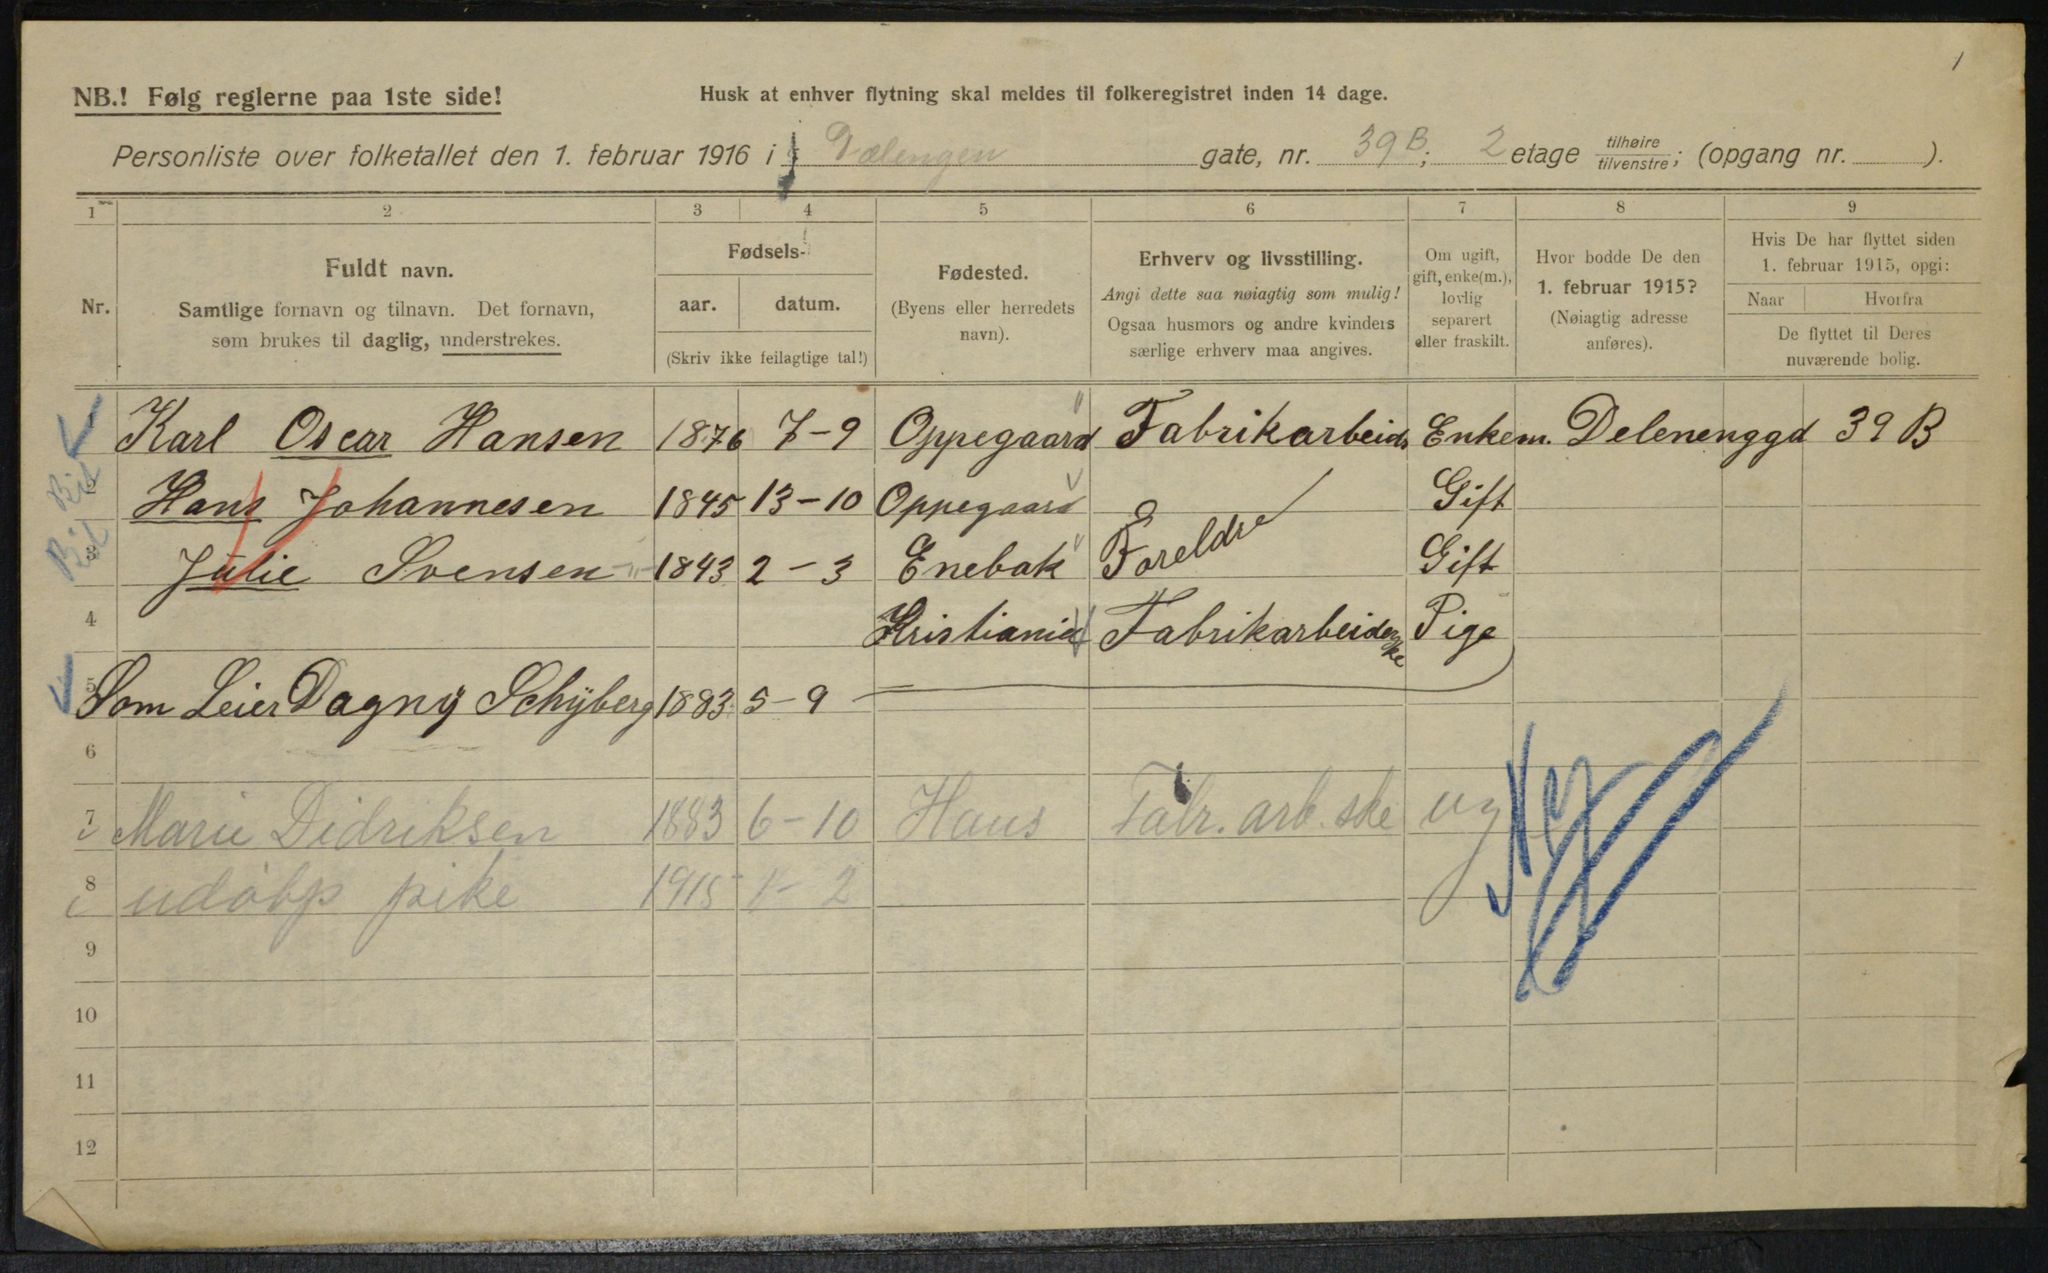 1
NB.! Følg reglerne paa 1ste side!
Husk at enhver flytning skal meldes til folkeregistret inden 14 dage.
Personliste over folketallet den 1. februar 1916 i Dælengen gate, nr. 39B; 2 etage tilhøire tilvenstre; (opgang nr. ).
1 2 3 4 5 6 7 8 9
Nr.
Fuldt navn.
Samtlige fornavn og tilnavn. Det fornavn,
som brukes til daglig, understrekes.
Fødsels-
aar. datum.
(Skriv ikke feilagtige tal!)
Fødested.
(Byens eller herredets
navn).
Erhverv og livsstilling.
Angi dette saa nøiagtig som mulig!
Ogsaa husmors og andre kvinders
særlige erhverv maa angives.
Om ugift,
gift, enke(m.),
lovlig
separert
eller fraskilt.
Hvor bodde De den
1. februar 1915?
(Nøiagtig adresse
anføres).
Hvis De har flyttet siden
1. februar 1915, opgi:
Naar Hvorfra
De flyttet til Deres
nuværende bolig.
Karl Oscar Hansen 1876 7-9 Oppegaard Fabrikarbeids Enkem. Delenenggd 39 B
Hans Johannesen 1845 13-10 Oppegaard Gift
3 Julie Svensen 1843 2-3 Enebak Foreldre Gift
4 Kristiania Fabrikarbeiderske Pige
5 Som Leier Dagny Schyberg 1883 5-9
6
7 Marie Didriksen 1883 6-10 Hans Fabr. arb. ske ug
8 udøbp pike 1915 1-2
9
10
11
12